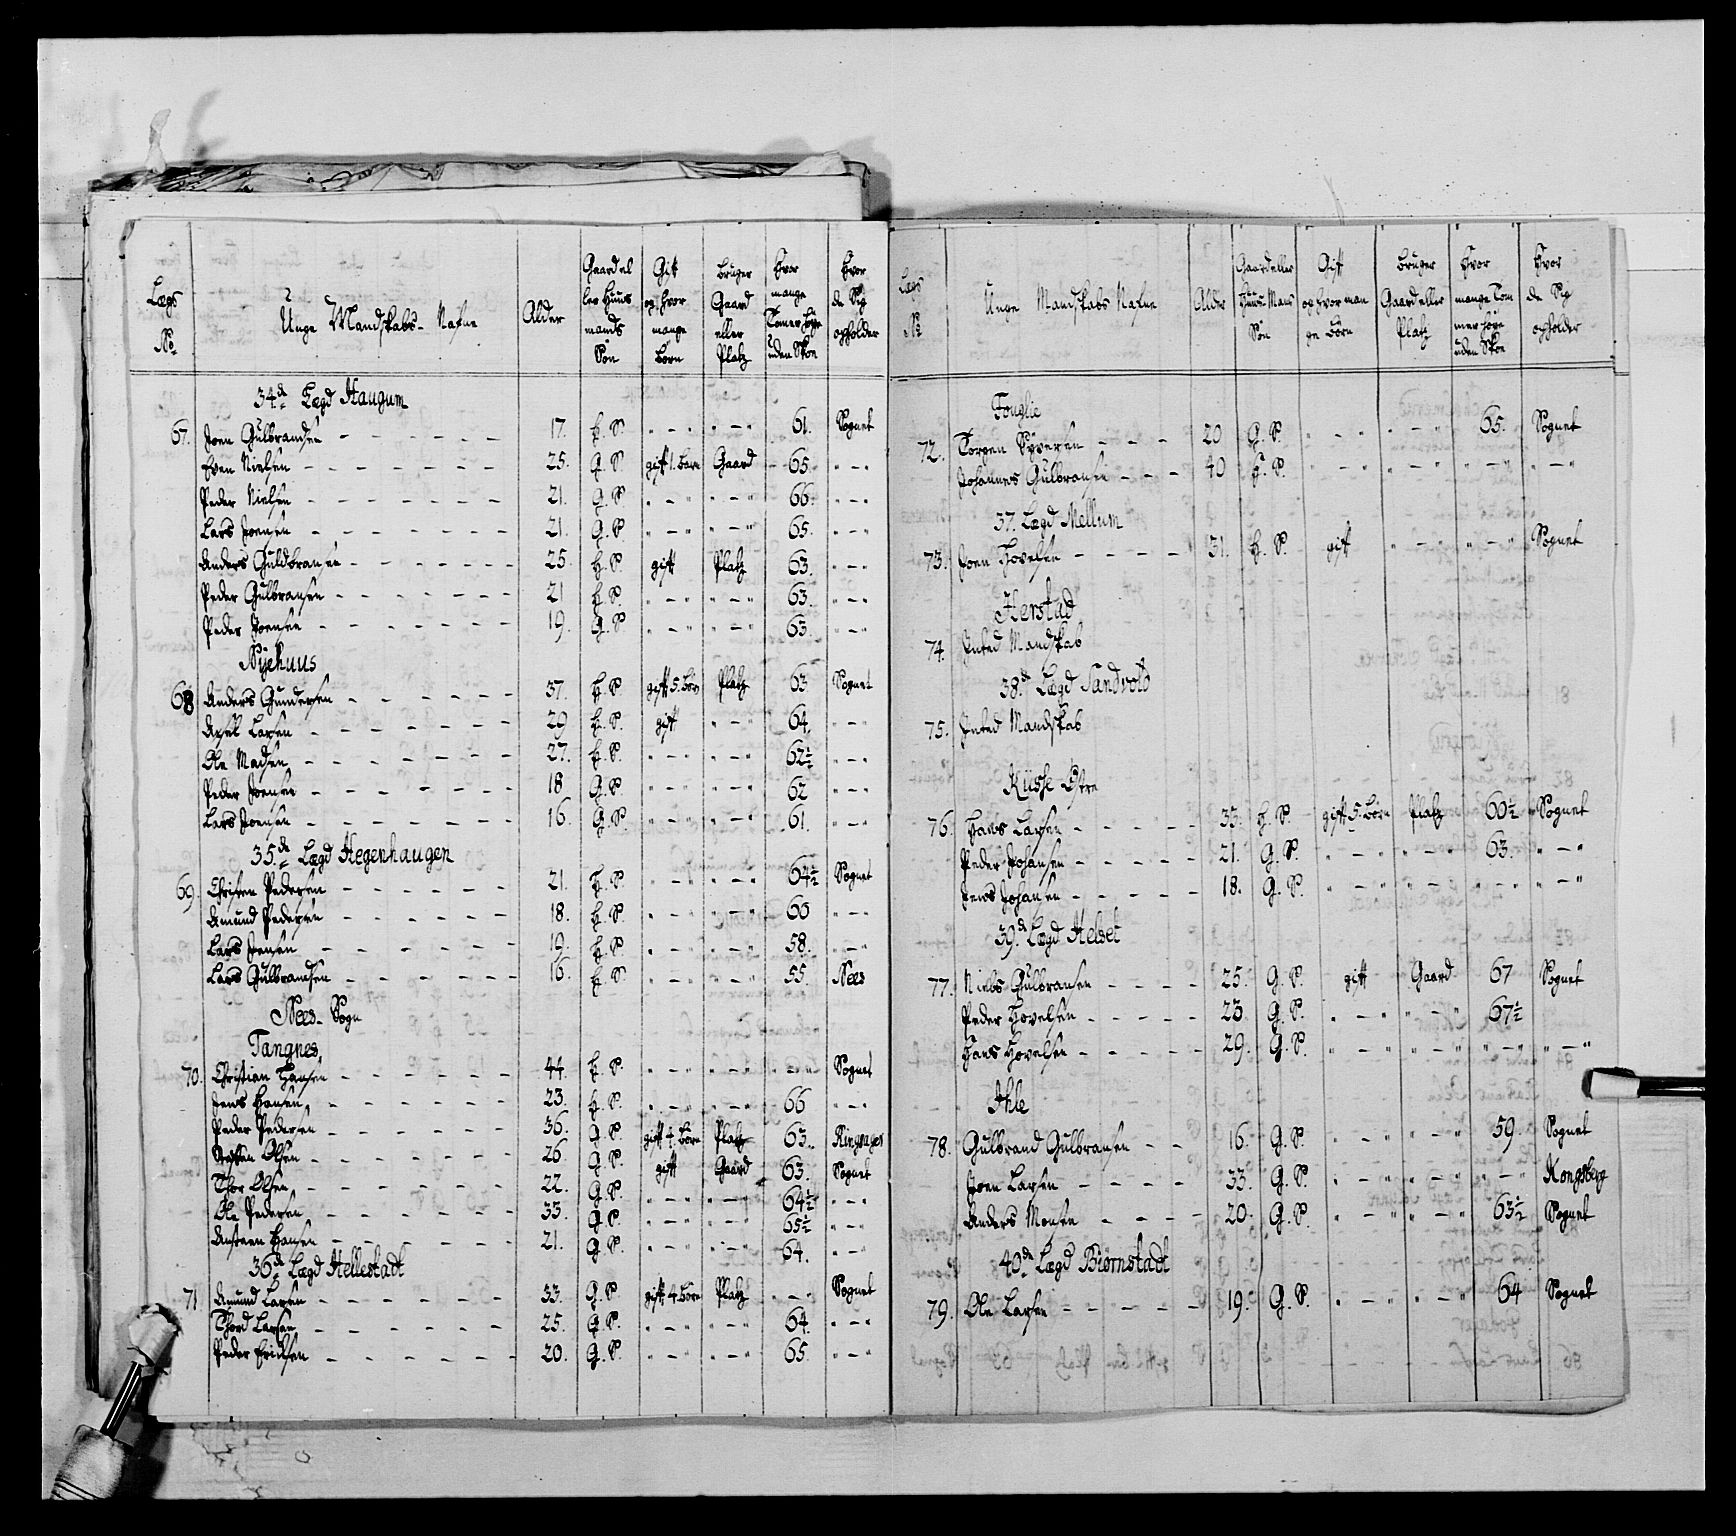 Lægs No | Unge Mandskabs Nafne | Alder | Gaard eller Huusmands Søn | Gift og hvor mange Børn | Bruger Gaard eller Platz | Hvor mange Tomer høye uden Skoe | Hvor de Sig opholder
34de Lægd Haugum
67. Joen Gulbrandsen - - - 17. H. S. " - " " - " 61. Sognet
Even Nielsen - - - 25. G. S. gift 1. Barn Gaard 65. " - "
Peder Nielsen - - - 21. G. S. " - " " - " 66. " - "
Lars Joensen - - - 21. G. S. " - " " - " 65. " - "
Anders Guldbransen - - - 25. H. S. gift Platz 63. " - "
Peder Gulbransen - - - 21 H. S. " - " " - " 63. " - "
Peder Joensen - - - 19. G. S. " - " " - " 63. " - "
Nyehuus
68 Anders Gundersen - - - 37. H. S. gift 5. Børn Platz 63 Sognet
Axsel Larsen - - - 29 H. S. gift " - " 64. " - "
Ole Madsen - - - 27. H. S. " - " " - " 62½ " - "
Peder Joensen - - - 18 G. S. " - " " - " 62 " - "
Lars Joensen - - - 16. G. S. " - " " - " 61. " - "
35de Lægd Hegenhaugen
69. Christen Pedersen - - - 21. H. S. " - " " - " 64½ Sognet
Amund Pedersen - - - 18. H. S. " - " " - " 60 " - "
Lars Jensen - - - 19. H. S. " - " " - " 58. " - "
Lars Gulbrandsen - - - 16. H. S. " - " " - " 55. Nees
Nees Sogn
Tangnes
70. Christian Hansen - - - 44. H. S. " - " " - " " - " Sognet
Jens Hansen - - - 23. H. S. " - " " - " 66 " - "
Peder Pedersen - - - 36. G. S. gift 4. Børn Platz 63. Ringerige
Steffen Olsen - - - 26 G. S. gift Gaard 63. Sognet
Thor Olsen - - - 22. G. S. " - " " - " 64½ " - "
Ole Pedersen - - - 33. G. S. " - " " - " 65½ " - "
Austeen Hansen - - - 21. G. S. " - " " - " 64. " - "
36de Lægd Hellestadt
71 Amund Larsen - - - 33. G. S. gift 4. Børn Platz " - " Sognet
Thord Larsen - - - 25. G. S. " - " " - " 64. " - "
Peder Ericksen - - - 20. G. S. " - " " - " 65. " - "
Lægs No | Unge Mandskabs Nafne | Alder | Gaard eller Huus Mans Søn | Gift og hvor mange Børn | Bruger Gaard eller Platz | Hvor mange Tommer høye uden Skoe | Hvor de Sig opholder
Fouglie
72. Torgen Syversen - - - 20 G. S. " - " " - " 65. Sognet
Johannes Gulbransen - - - 40 H. S. " - " " - " " - " " - "
37. Lægd Mellum
73. Joen Hovelsen - - - 31. H. S. gift " - " " - " Sognet
Herstad
74. Inted Mandskab
38de Lægd Sandvold
75. Inted Mandskab
Küsse Østre
76. Hans Larsen - - - 33. H. S. gift 5. Børn Platz 60½ Sognet
Peder Johansen - - - 21. G. S. " - " " - " 63. " - "
Jens Johansen - - - 18. G. S. " - " " - " " - " " - "
39de Lægd Helset
77. Niels Gulbransen - - - 25. G. S. gift Gaard 67 Sognet
Peder Hovelsen - - - 23 G. S. " - " " - " 67½
Hans Hovelsen - - - 29. G. S. " - " " - " " - " " - "
Ihle
78. Gulbrand Gulbransen - - 16. G. S. " - " " - " 59. Sognet
Joen Larsen - - - 33. G. S. " - " " - " " - " Kongsberg
Anders Monsen - - - 20. G. S. " - " " - " 63½ Sognet
40de Lægd Biørnstadt
79. Ole Larsen - - - 19. G. S. " - " " - " 64 Sognet